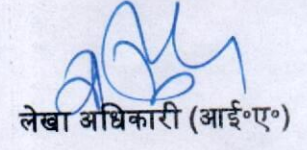 लेखा अधिकारी (आई॰ए॰)